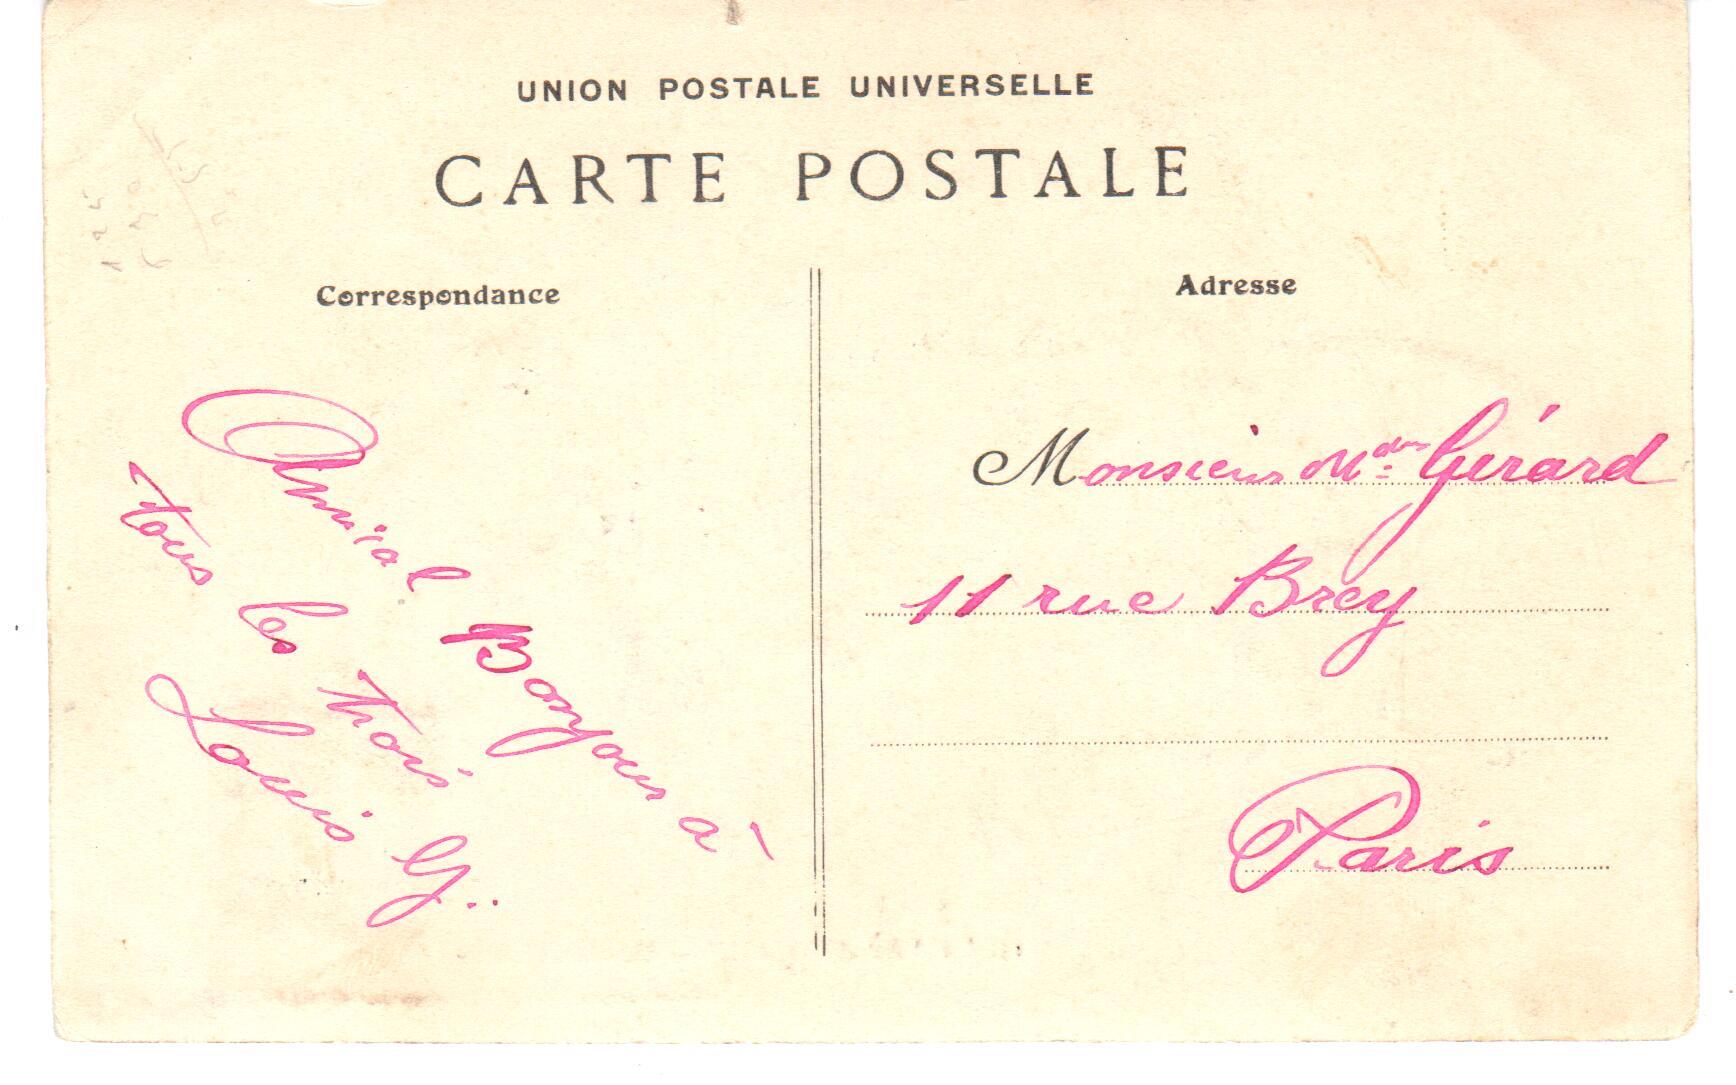 UNION POSTALE UNIVERSELLE
CARTE POSTALE
Correspondance
Amical Bonjour à
tous les trois
Louis G..
Adresse
Monsieur Mdme Gérard
11 rue Brey
Paris